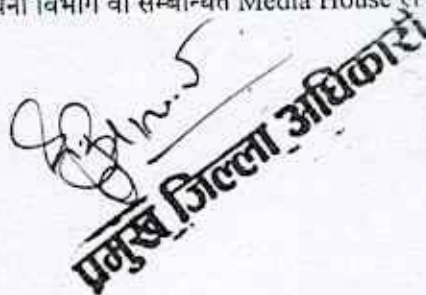 विभाग वा सम्बन्धित Media House
प्रमुख जिल्ला अधिकारी